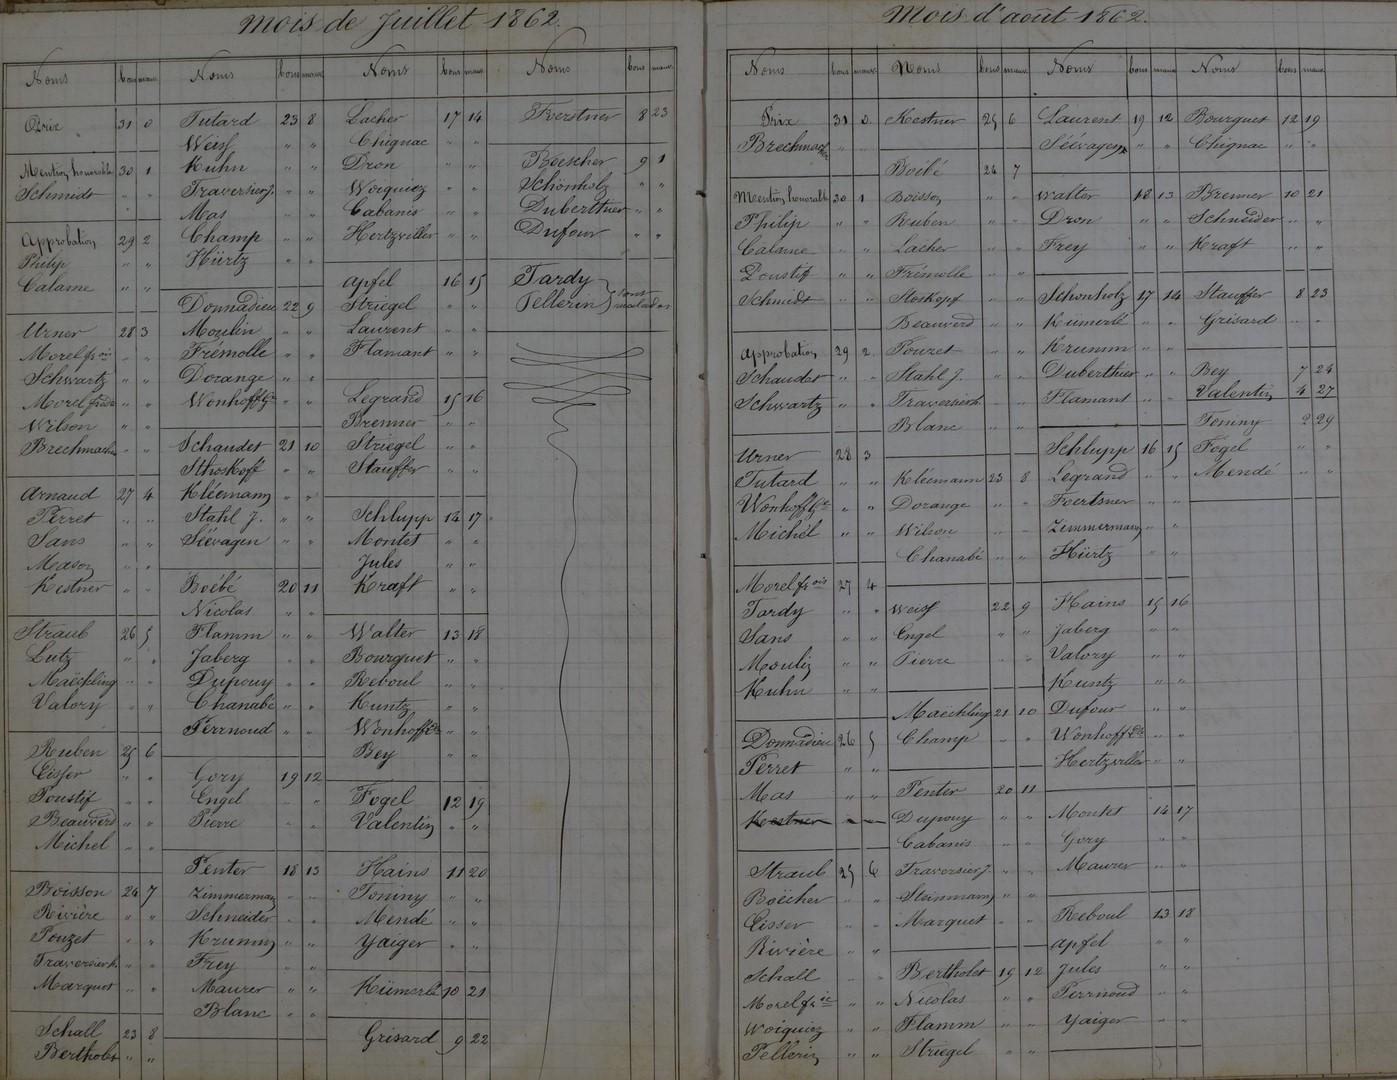 Mois de Juillet 1862.
Noms bons mauv.
Prix 31 0
Mention honorable 30 1
Schmidt " "
Approbation 29 2
Philip " "
Calame " "
Urner 28 3
Morel fr ois " "
Schwartz " "
Morel " "
Wilson " "
Brechmacher " "
Arnaud 27 4
Perret " "
Sans " "
Mason " "
Kestner " "
Straub 26 5
Lutz " "
Maëchling " "
Valory " "
Ruben 25 6
Eisser " "
Poustif " "
Beauverd " "
Michel " "
Boisson 24 7
Rivière " "
Pouzet " "
Traversier h. " "
Marquet " "
Schall 23 8
Berthole " "
Noms bons mauv.
Tutard 23 8
Weiss " "
Kuhn " "
Traversier j. " "
Mas " "
Champ " "
Hürtz " "
Donnadieu 22 9
Moulin " "
Frémolle " "
Dorange " "
Wonhoff Gve " "
Schaudet 21 10
Sthoskoff " "
Kléemann " "
Stahl J. " "
Séévagen " "
Boébé 20 11
Nicolas " "
Flamm " "
Jaberg " "
Dupouy " "
Chanabé " "
Perrnoud " "
Gory 19 12
Engel " "
Pierre " "
Penter 18 13
Zimmerman " "
Schneider " "
Krumm " "
Frey " "
Maurer " "
Blanc " "
Noms bons mauv
Lacher 17 14
Chignac " "
Dron " "
Woiquiez " "
Cabanis " "
Hertzviller " "
Apfel 16 15
Striegel " "
Laurent " "
Flamant " "
Legrand 15 16
Brenner " "
Striegel " "
Stauffer " "
Schlupp 14 17
Montet " "
Jules " "
Kraft " "
Walter 13 18
Bourguet " "
Reboul " "
Kuntz " "
Wonhoff " "
Bey " "
Fogel 12 19
Valentin " "
Hains 11 20
Toniny " "
Mendé " "
Yaiger " "
Kümerlé 10 21
Grisard 9 22
Noms bons mauv.
Foerstner 8 23
Böescher 9 1
Schönholz " "
Duberthier " "
Dufour " "
Tardy
Pellerin } sont malades
Mois d'août 1862.
Noms bons mauv.
Prix 31 0
Brechmacher " "
Mention honorable 30 1
Philip " "
Calame " "
Poustif " "
Schmidt " "
Approbation 29 2
Schaudet " "
Schwartz " "
Urner 28 3
Tutard " "
Wonhoff Gve " "
Michel " "
Morel fr ois 27 4
Tardy " "
Sans " "
Moulin " "
Kuhn " "
Donnadieu 26 5
Perret " "
Mas " "
Kestner " "
Straub 25 6
Boëcher " "
Eisser " "
Rivière " "
Schall " "
Morel fr ic " "
Woiquiez " "
Pellerin " "
Noms bons mauv
Kestner 25 6
Boébé 24 7
Boisson " "
Ruben " "
Lacher " "
Frémolle " "
Stoskopf " "
Beauverd " "
Pouzet " "
Stahl J. " "
Traversier h. " "
Blanc " "
Kléemann 23 8
Dorange " "
Wilson " "
Chanabé " "
Weiss 22 9
Engel " "
Pierre " "
Maëchling 21 10
Champ " "
Penter 20 11
Dupouy " "
Cabanis " "
Traversier J. " "
Steinmann " "
Marquet " "
Berthole 19 12
Nicolas " "
Flamm " "
Striegel " "
Noms bons mauv
Laurent 19 12
Séévagen " "
Walter 18 13
Dron " "
Frey " "
Schonholz 17 14
Kümerlé " "
Krumm " "
Duberthier " "
Flamant " "
Schlupp 16 15
Legrand " "
Foertsner " "
Zimmermann " "
Hürtz " "
Hains 15 16
Jaberg " "
Valory " "
Kuntz " "
Dufour " "
Wonhoff " "
Hertzviller " "
Montet 14 17
Gory " "
Maurer " "
Reboul 13 18
Apfel " "
Jules " "
Perrnoud " "
Yaiger " "
Noms bons mauv
Bourguet 12 19
Chignac " "
Brenner 10 21
Schneider " "
Kraft " "
Stauffer 8 23
Grisard " "
Bey 7 24
Valentin 4 27
Toniny 2 29
Fogel " "
Mendé " "